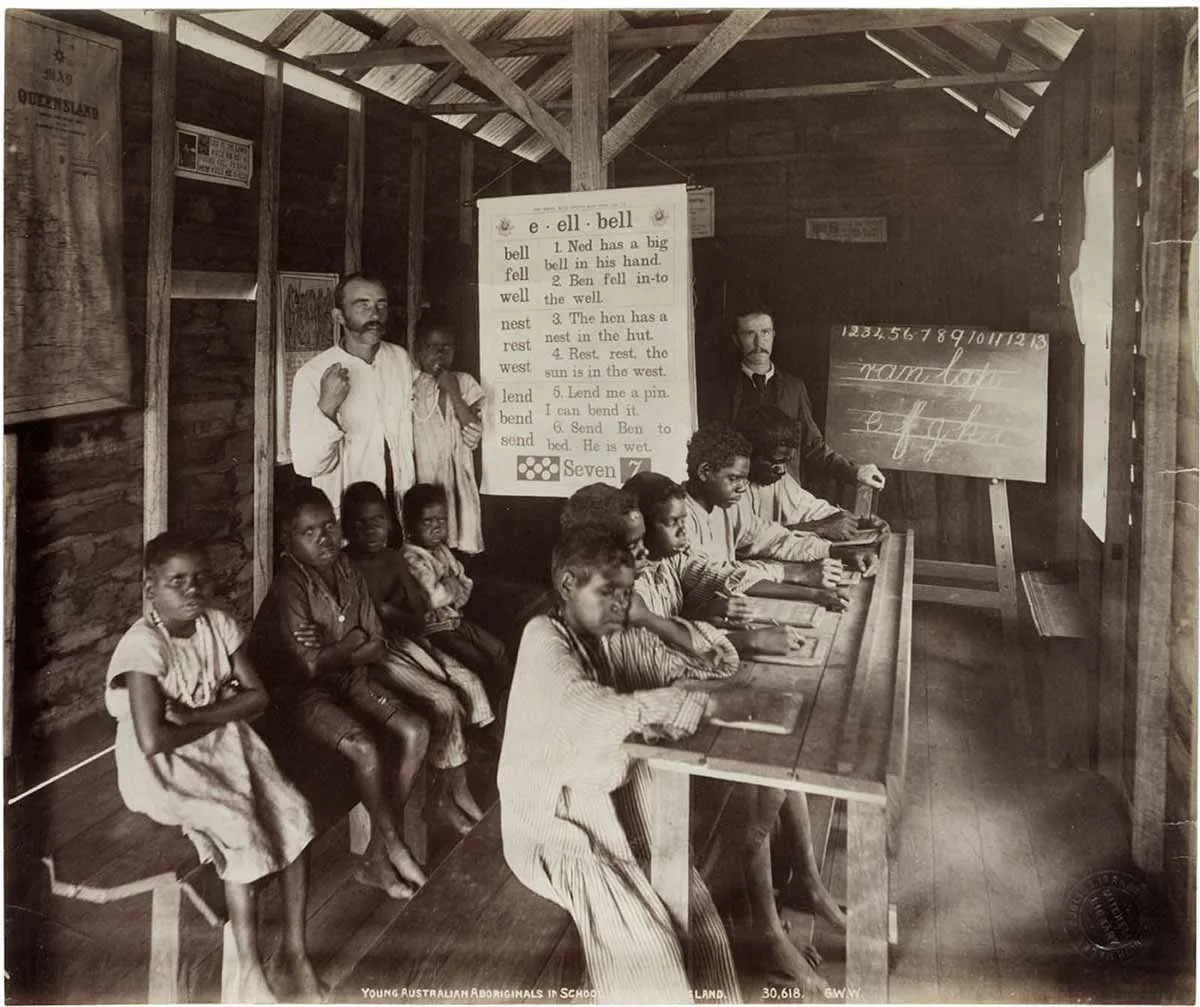 MAP
OF
QUEENSLAND
e · ell · bell
bell
fell
well
1. Ned has a big
bell in his hand.
2. Ben fell in-to
the well.
nest
rest
west
3. The hen has a
nest in the hut.
4. Rest, rest, the
sun is in the west.
lend
bend
send
5. Lend me a pin.
I can bend it.
6. Send Ben to
bed. He is wet.
Seven 7
1 2 3 4 5 6 7 8 9 10 11 12 13
ran lap
e f g h
YOUNG AUSTRALIAN ABORIGINALS IN SCHOOL LAND. 30,618. G.W.W.